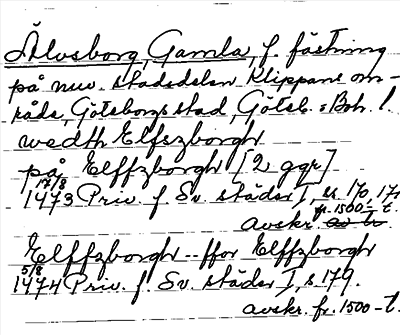 Älvsborg, Gamla, f. fästning
på nuv. stadsdelen Klippans om-
råde, Göteborgs stad, Göteb. o Boh. l.
wedh Elfszborgh
på Elffzborgh [2 ggr]
17/8
1473 Priv. f. Sv. städer I, ss 170, 171
avskr. fr. 1500-t.
Elffzborgh -- ffor Elffzborgh
5/8
1474 Priv. f. Sv. städer I, s. 179.
avskr. fr. 1500-t.